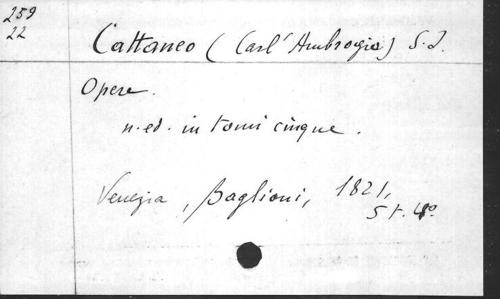 259
22
Cattaneo (Carl' Ambrogio) S.J.
Opere.
n. ed. in tomi cinque.
Venezia, Baglioni, 1821,
5 t. 4º